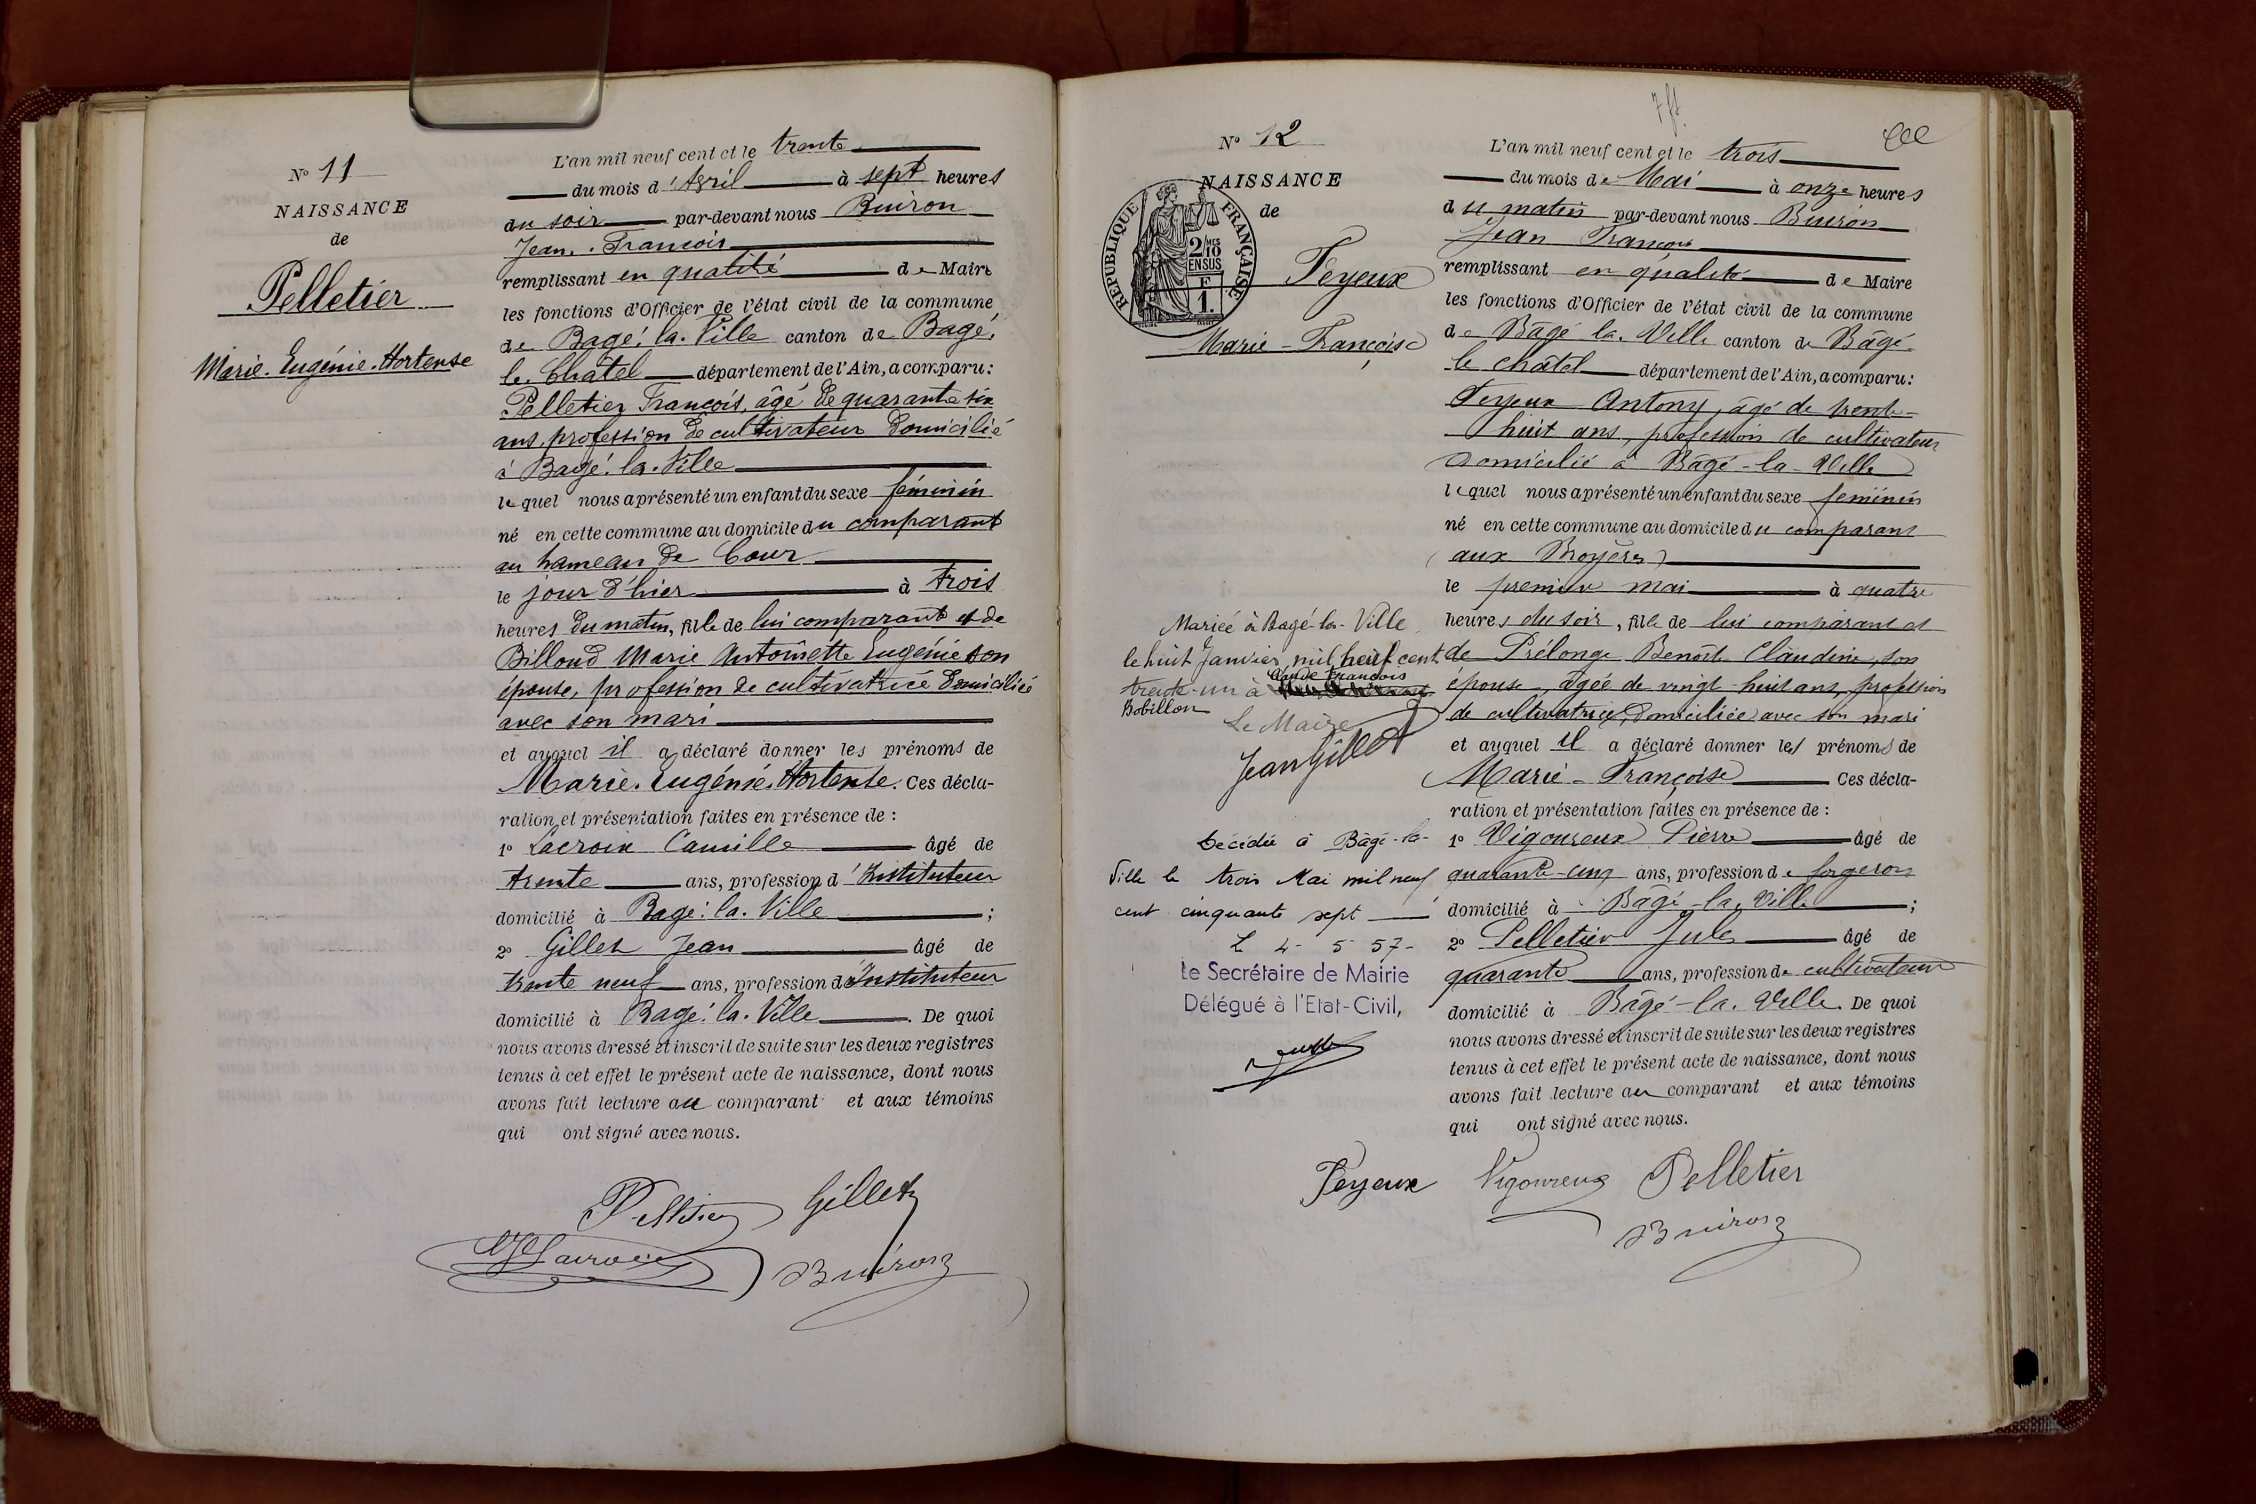 N° 11
NAISSANCE
de
Pelletier
Marie. Eugénie. Hortense
L'an mil neuf cent et le trente
du mois d'Avril à sept heures
du soir par-devant nous Buiron
Jean. François
remplissant en qualité de Maire
les fonctions d'Officier de l'état civil de la commune
de Bagé. la. Ville canton de Bagé.
le. Châtel département de l'Ain, a comparu:
Pelletier François, âgé de quarante six
ans, profession de cultivateur domicilié
à Bagé. la. Ville
lequel nous a présenté un enfant du sexe féminin
né en cette commune au domicile du comparant
au hameau de Cour
le jour d'hier à trois
heures du matin, fille de lui comparant et de
Billoud Marie Antoinette Eugénie son
épouse, profession de cultivatrice domiciliée
avec son mari
et auquel il a déclaré donner les prénoms de
Marie. Eugénie. Hortense. Ces décla-
ration et présentation faites en présence de :
1° Lacroix Camille âgé de
trente ans, profession d'Instituteur
domicilié à Bagé. la. Ville ;
2° Gillet Jean âgé de
trente neuf ans, profession d'Instituteur
domicilié à Bagé. la. Ville. De quoi
nous avons dressé et inscrit de suite sur les deux registres
tenus à cet effet le présent acte de naissance, dont nous
avons fait lecture au comparant et aux témoins
qui ont signé avec nous.
Pelletier Gillet
Lacroix Buiron
N° 12
NAISSANCE
de
REPUBLIQUE FRANÇAISE
2/10 MES
EN SUS
F
1.
Feyeux
Marie - Françoise
Mariée à Bagé-la-Ville
le huit Janvier mil neuf cent
trente-un à Claude François
Bobillon
Le Maire
Jean Gillet
Décédée à Bâgé-la-
Ville le trois Mai mil neuf
cent cinquante sept
L 4 - 5 57 -
Le Secrétaire de Mairie
Délégué à l'Etat-Civil,
L'an mil neuf cent et le trois
du mois de Mai à onze heures
du matin par-devant nous Buiron
Jean François
remplissant en qualité de Maire
les fonctions d'Officier de l'état civil de la commune
de Bâgé-la. Ville canton de Bâgé
le châtel département de l'Ain, a comparu:
Feyeux Antony, âgé de trente-
huit ans, profession de cultivateur
domicilié à Bâgé-la-Ville
lequel nous a présenté un enfant du sexe féminin
né en cette commune au domicile du comparant
aux Broyères
le premier mai à quatre
heures du soir, fille de lui comparant et
de Prélonge Benoîte Claudine, son
épouse, âgée de vingt-huit ans, profession
de cultivatrice, domiciliée avec son mari
et auquel il a déclaré donner les prénoms de
Marie - Françoise Ces décla-
ration et présentation faites en présence de :
1° Vigoureux Pierre âgé de
quarante-cinq ans, profession de forgeron
domicilié à Bâgé-la. Ville ;
2° Pelletier Jules âgé de
quarante ans, profession de cultivateur
domicilié à Bâgé-la. Ville. De quoi
nous avons dressé et inscrit de suite sur les deux registres
tenus à cet effet le présent acte de naissance, dont nous
avons fait lecture au comparant et aux témoins
qui ont signé avec nous.
Feyeux Vigoureux Pelletier
Buiron